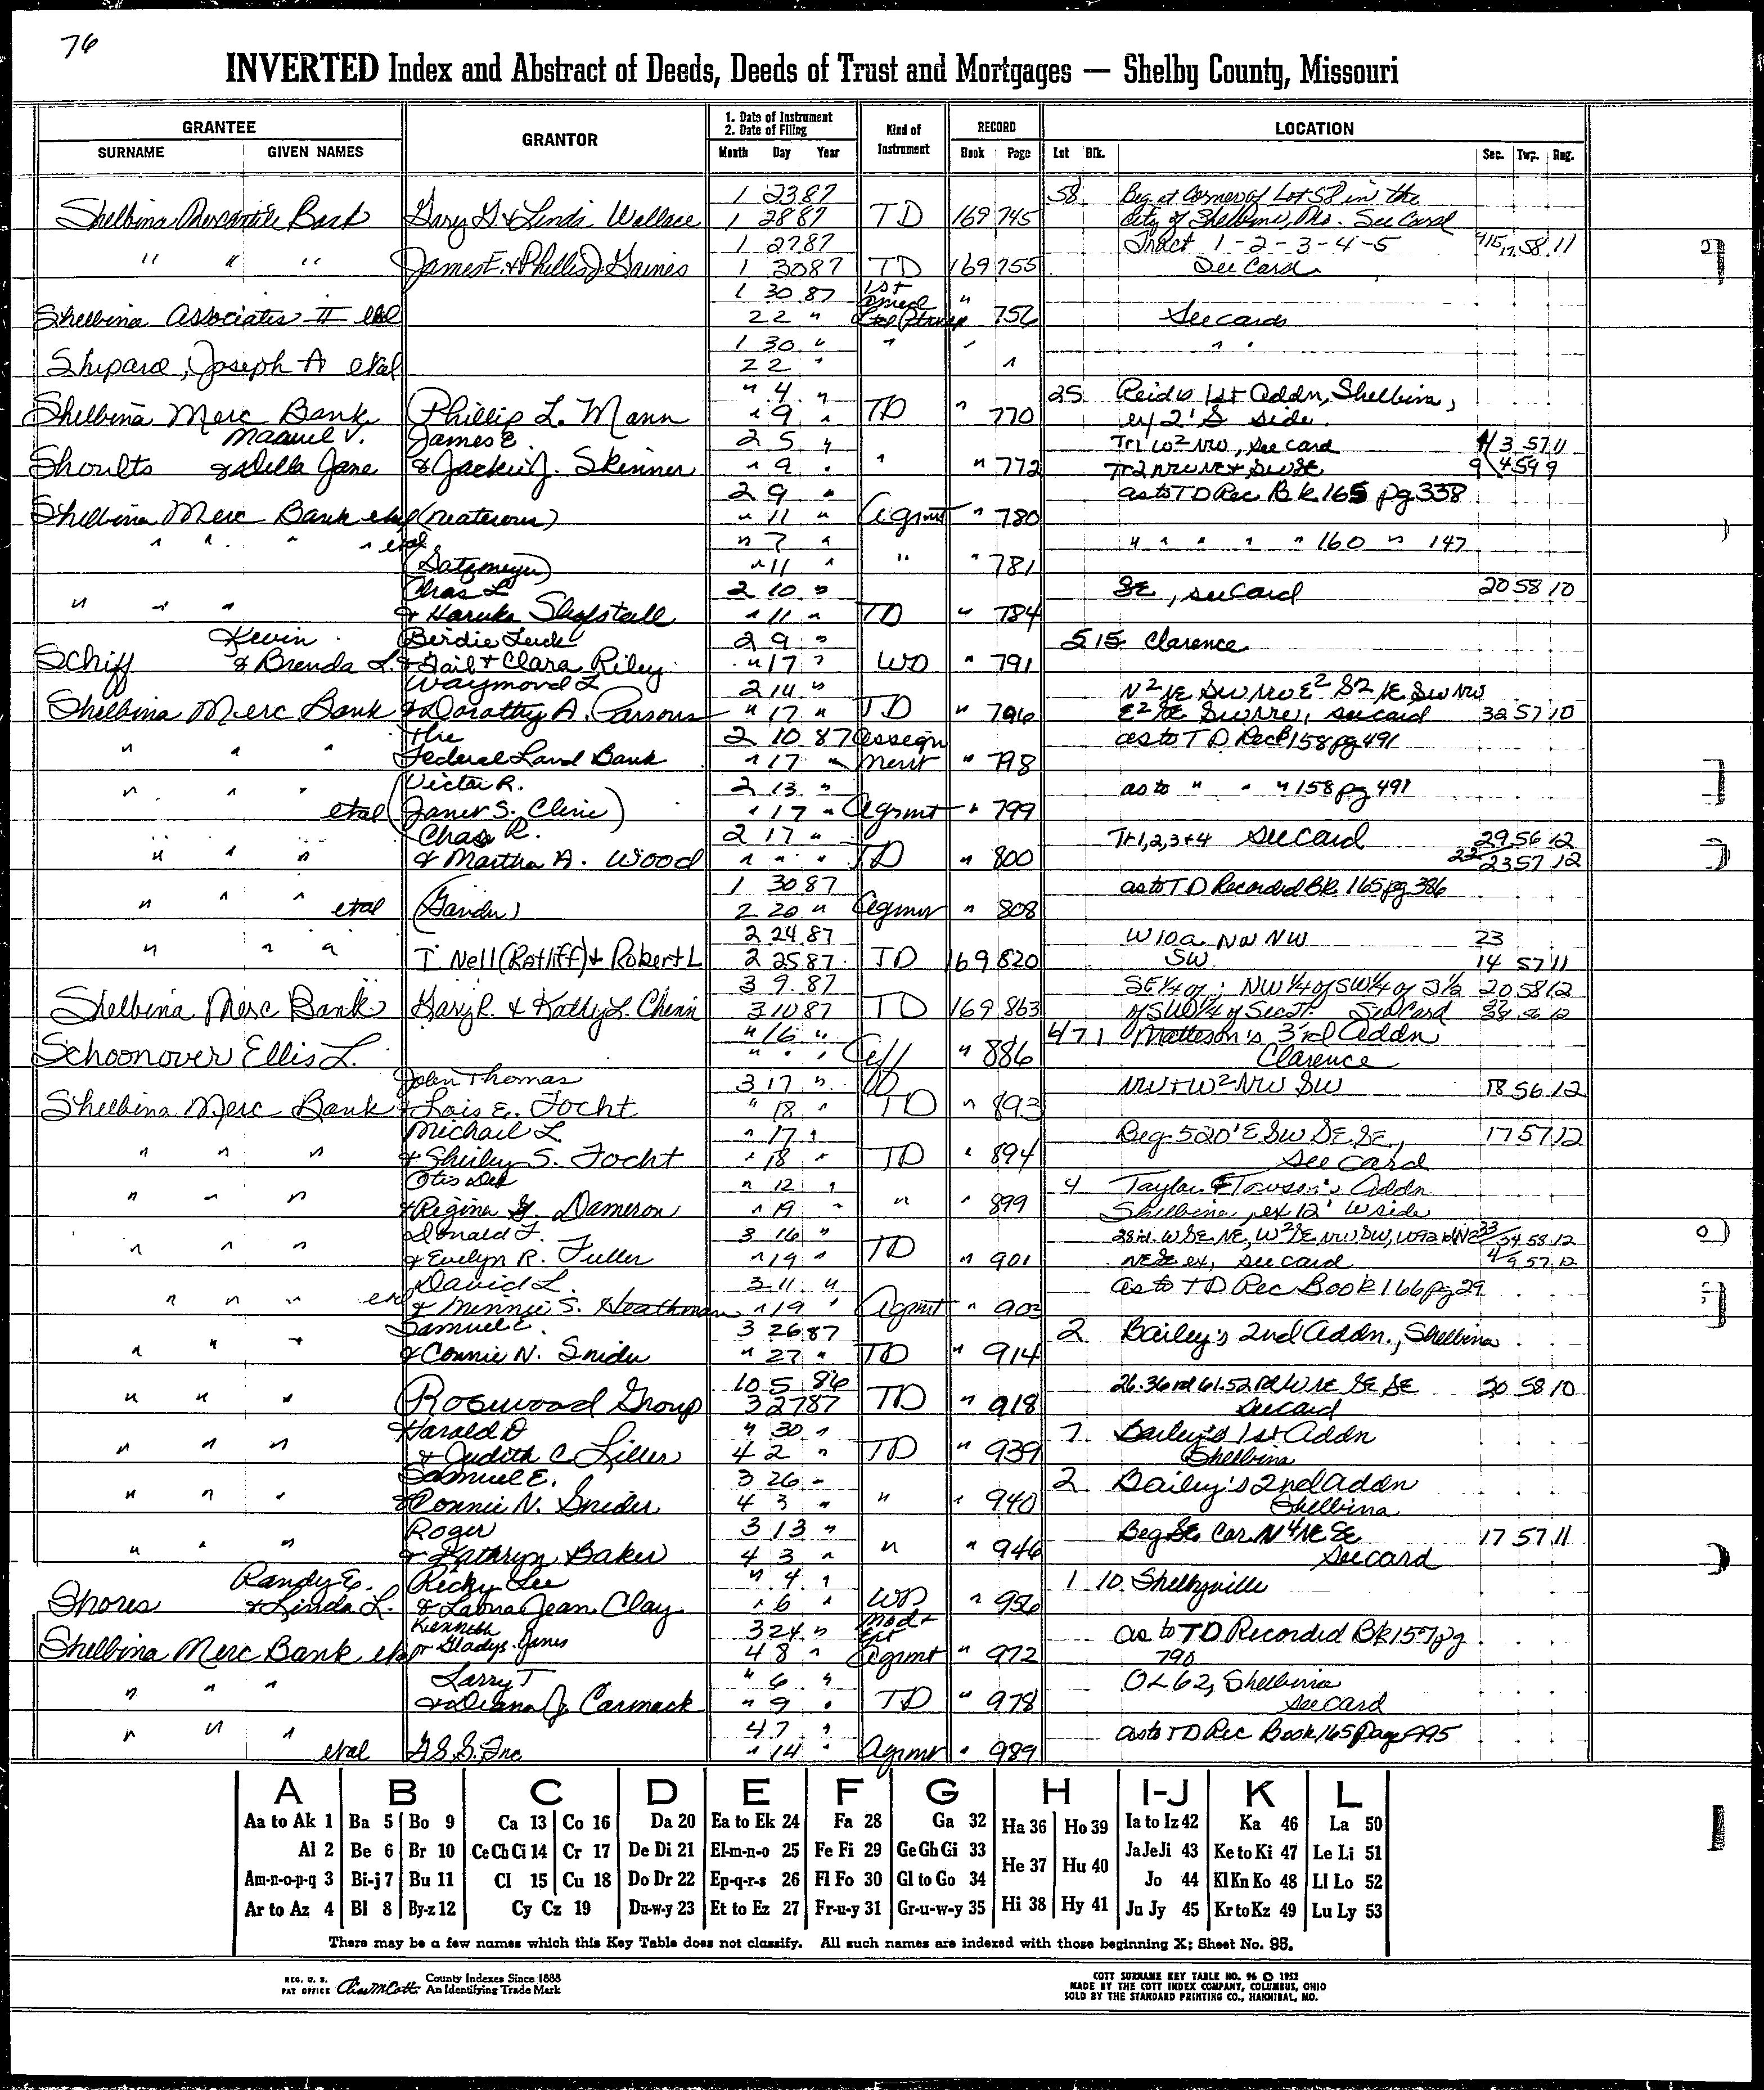 76
INVERTED Index and Abstract of Deeds, Deeds of Trust and Mortgages — Shelby County, Missouri
GRANTEE GRANTOR 1. Date of Instrument 2. Date of Filing Kind of Instrument RECORD LOCATION
SURNAME GIVEN NAMES Month Day Year Book Page Lot Blk. Sec. Twp. Rng.
1 23 87 58 Beg at Corner of Lot 58 in the
Shelbina Mercantile Bank Gary G. & Linda Wallace 1 28 87 TD 169 745 City of Shelbina, Mo. See Card
1 27 87 Tract 1-2-3-4-5 58 11
" " " James E. & Phillis J. Gaines 1 30 87 TD 169 755 See Card
1 30 87 1st
Shelbina Associates II etal 2 2 " Amed " 756 See cards
1 30 " " " " "
Shipard, Joseph A etal 2 2 " "
" 4 " 25 Reid's 1st Addn, Shelbina,
Shelbina Merc Bank Phillip L. Mann " 9 " TD " 770 ex 2' S side
Manuel V. James E. 2 5 " Tr1 W2 NW, see card 3 57 11
Shoults & Della Jane & Jackie J. Skinner " 9 " " " 772 Tr2 NW NE & SW SE 9 4 59 9
2 9 " as to TD Rec Bk 165 pg 338
Shelbina Merc Bank etal " 11 " Agmt " 780
" " " " etal " 7 " " " " " " 160 " 147
" 11 " " " 781
Chas L 2 10 " SE, see card 20 58 10
" " " & Haruko Shofstall " 11 " TD " 784
Kevin Birdie Luck 2 9 " 5 15 Clarence
Schiff & Brenda L. & Gail & Clara Riley " 17 " WD " 791
Waymond L 2 14 " N2 NE SW NW E2 S2 NE SW NW
Shelbina Merc Bank & Dorothy A. Parsons " 17 " TD " 796 E2 SE SW NW, see card 32 57 10
The 2 10 87 Assign as to TD Rec B 158 pg 491
" " " Federal Land Bank " 17 " ment " 798
(Victor R. 2 13 " as to " " " 158 pg 491
" " " etal Janet S. Cline) " 17 " Agmt " 799
Chas R. 2 17 " Tr 1,2,3+4 see card 29 56 12
" " " & Martha A. Wood " " " TD " 800 22 23 57 12
1 30 87 as to TD Recorded Bk 165 pg 386
" " " etal (Gander) 2 20 " Agmt " 808
2 24 87 W 10a NW NW 23
" " " T. Nell (Ratliff) & Robert L 2 25 87 TD 169 820 SW 14 57 11
3 9 87 SE 1/4 of; NW 1/4 of SW 1/4 of S 1/2 20 58 12
Shelbina Merc Bank Gary R. & Kathy L. Chinn 3 10 87 TD 169 863 of SW 1/4 of Sec 27. See Card 56 12
" 16 " 4 7 1 Matteson's 3rd Addn
Schoonover Ellis L. " " " Aff " 886 Clarence
John Thomas 3 17 " NW & W2 NW SW 18 56 12
Shelbina Merc Bank & Lois E. Focht " 18 " TD " 893
Michael L. " 17 " Beg 520' E SW SE SE, 17 57 12
" " " & Shirley S. Focht " 18 " TD " 894 See Card
Otis Dek " 12 " 4 Taylor & Towson's Addn
" " " & Regina G. Dameron " 19 " " " 899 Shelbina, ex 12' W side
Donald F. 3 16 " 28 rd. W SE NE, W2 SE, NW SW, W92 rd NE 33/34 58 12
" " " & Evelyn R. Fuller " 19 " TD " 901 NE SE ex, see card 4/9 57 12
David L. 3 11 " as to TD Rec Book 166 pg 29
" " " etal & Minnie S. Heathman " 19 " Agmt " 903
Samuel E. 3 26 87 2 Bailey's 2nd Addn., Shelbina
" " " & Connie N. Snider " 27 " TD " 914
10 5 86 26.36 rd 61.52 rd W NE SE SE 20 58 10
" " " Rosewood Group 3 27 87 TD " 918 see card
Harold D " 30 " 7 Bailey's 1st Addn
" " " & Judith C Liller 4 2 " TD " 939 Shelbina
Samuel E. 3 26 " 2 Bailey's 2nd Addn
" " " & Connie N. Snider 4 3 " " " 940 Shelbina
Roger 3 13 " Beg SE Cor N4 NE SE 17 57 11
" " " & Kathryn Baker 4 3 " " " 946 See card
Randy E. Ricky Lee " 4 " 1 10 Shelbyville
Shores & Linda L. & Laona Jean Clay " 6 " WD " 956
Kenneth 3 24 " Mod & Ext as to TD Recorded Bk 157 pg
Shelbina Merc Bank etal or Gladys Janes 4 8 " Agmt " 972 790
Larry T " 6 " OL 62, Shelbina
" " " & Diana J. Carmack " 9 " TD " 978 see card
" " " 4 7 " as to TD Rec Book 165 Page 995
etal G.S.S. Inc " 14 " Agmt " 989
A B C D E F G H I-J K L
Aa to Ak 1 Ba 5 Bo 9 Ca 13 Co 16 Da 20 Ea to Ek 24 Fa 28 Ga 32 Ha 36 Ho 39 Ia to Iz 42 Ka 46 La 50
Al 2 Be 6 Br 10 Ce Ch Ci 14 Cr 17 De Di 21 El-m-n-o 25 Fe Fi 29 Ge Gh Gi 33 He 37 Hu 40 Ja Je Ji 43 Ke to Ki 47 Le Li 51
Am-n-o-p-q 3 Bi-j 7 Bu 11 Cl 15 Cu 18 Do Dr 22 Ep-q-r-s 26 Fl Fo 30 Gl to Go 34 Jo 44 Kl Kn Ko 48 Ll Lo 52
Ar to Az 4 Bl 8 By-z 12 Cy Cz 19 Du-w-y 23 Et to Ez 27 Fr-u-y 31 Gr-u-w-y 35 Hi 38 Hy 41 Ju Jy 45 Kr to Kz 49 Lu Ly 53
There may be a few names which this Key Table does not classify. All such names are indexed with those beginning X; Sheet No. 95.
REG. U. S. PAT OFFICE County Indexes Since 1888 An Identifying Trade Mark
COTT SURNAME KEY TABLE NO. 96 © 1952
MADE BY THE COTT INDEX COMPANY, COLUMBUS, OHIO
SOLD BY THE STANDARD PRINTING CO., HANNIBAL, MO.